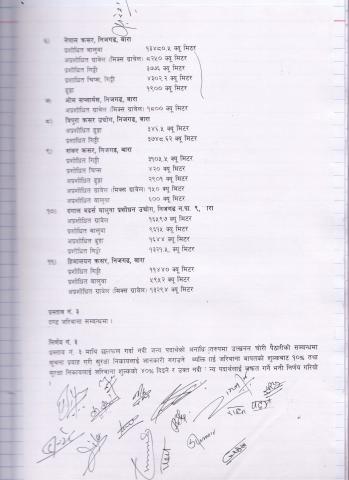 ६) नेपाल क्रसर, निजगढ, बारा
प्रशोधित बालुवा १३४८०.५ क्यू मिटर
अप्रशोधित ग्राभेल (मिक्स ग्राभेल) ८२५० क्यू मिटर
प्रशोधित गिट्टी ३७७६ क्यू मिटर
प्रशोधित चिप्स, गिट्टी ४३०२.२ क्यू मिटर
ढुङ्गा १९०० क्यू मिटर
७) ओम सप्लायर्स, निजगढ, बारा
अप्रशोधित ग्राभेल (मिक्स ग्राभेल) १८०० क्यू मिटर
८) त्रिपुरा क्रसर उद्योग, निजगढ, बारा
अप्रशोधित ढुङ्गा ३४६.५ क्यू मिटर
प्रशोधित गिट्टी ३७४८.६२ क्यू मिटर
९) शंकर क्रसर, निजगढ, बारा
प्रशोधित गिट्टी ३९०५.५ क्यू मिटर
प्रशोधित चिप्स ४२० क्यू मिटर
अप्रशोधित ढुङ्गा २९०१ क्यू मिटर
अप्रशोधित ग्राभेल (मिक्स ग्राभेल) १५० क्यू मिटर
अप्रशोधित बालुवा ६०० क्यू मिटर
१०) दयाल ब्रदर्स बालुवा प्रशोधन उद्योग, निजगढ न.पा. ९, ारा
अप्रशोधित ग्राभेल १६५९७ क्यू मिटर
प्रशोधित बालुवा ९६१५ क्यू मिटर
अप्रशोधित ढुङ्गा १६४४ क्यू मिटर
प्रशोधित गिट्टी १३२१.५ क्यू मिटर
११) हिमालयन क्रसर, निजगढ, बारा
प्रशोधित गिट्टी ११४४० क्यू मिटर
प्रशोधित बालुवा ५९५२ क्यू मिटर
अप्रशोधित ग्राभेल (मिक्स ग्राभेल) १३२९४ क्यू मिटर
प्रस्ताव नं. ३
दण्ड जरिवाना सम्बन्धमा ।
निर्णय नं. ३
प्रस्ताव नं. ३ माथि छलफल गर्दा नदी जन्य पदार्थको उत्खनन चोरी पैठारीको सम्बन्धमा
सूचना प्रवाह गरी सुरक्षा निकायलाई जानकारी गराउने जरिवाना बापतको शुल्कबाट १०% तथा
सुरक्षा निकायलाई जरिवाना शुल्कको ४०% दिइने र उक्त नदी पदार्थलाई जफत गर्ने भनी निर्णय गरियो
।